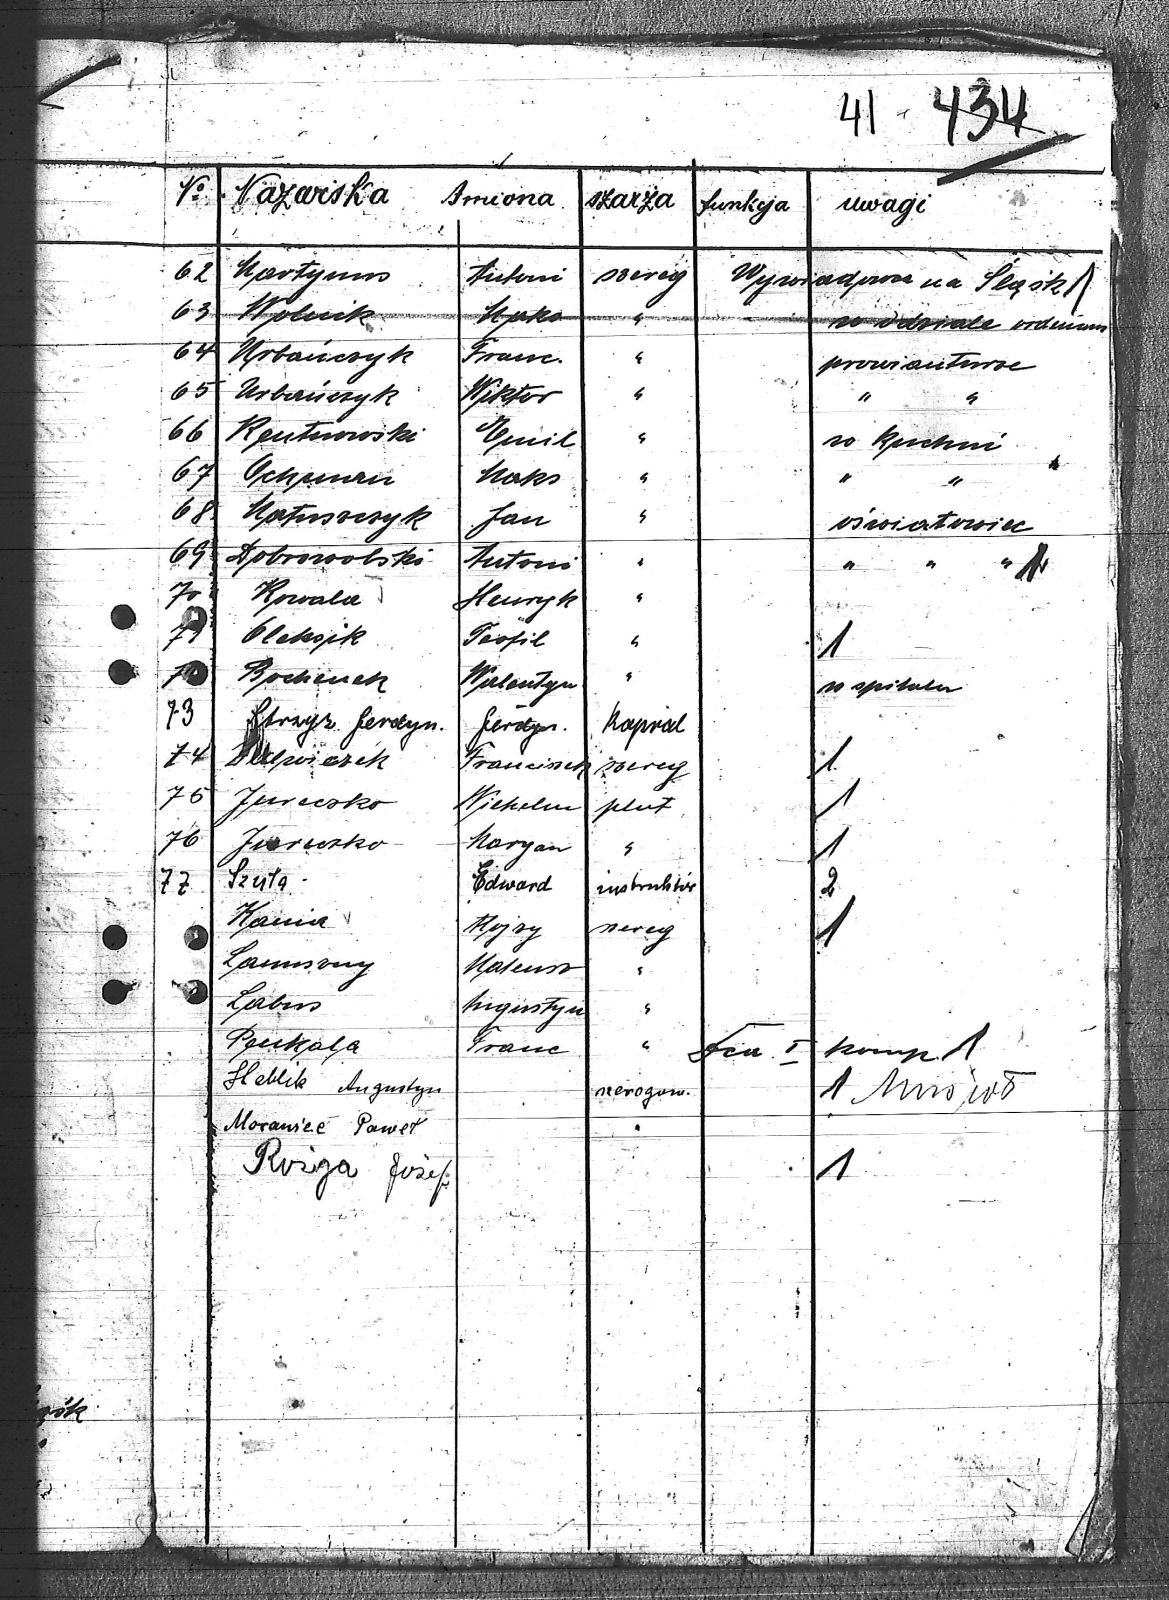 41 434
No Nazwiska Imiona szarża funkcja uwagi
62 Martynus Antoni szereg Wywiadowca na Śląsk 1
63 Wolnik Maks " w oddziale ordenans
64 Urbańczyk Franc. " prowianturze
65 Urbańczyk Wiktor " " "
66 Rputnowski Emil " w kuchni
67 Ochmann Maks " " "
68 Matuszczyk Jan " oświatowiec
69 Dobrowolski Antoni " " " " 1
70 Kowala Henryk "
71 Oleksik Teofil " 1
Bochenek Walentyn " w szpitalu
73 Strzyz Ferdyn. Ferdyn. Kapral
74 Franciszek szereg 1
75 Jureczko Wilhelm plut 1
76 Jureczko Maryan " 1
77 Szuta Edward instruktór 2
Kania szereg 1
Mateusz "
Labus Augustyn "
Penkala Franc " I komp 1
Heblik Augustyn szeregow. 1
Morawiec Paweł "
Roziga Józef 1